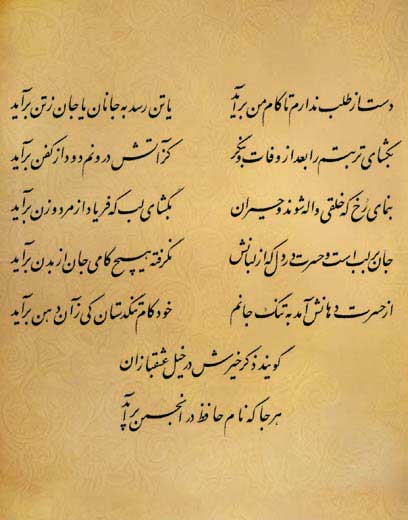 دست از طلب ندارم تا کام من برآید یا تن رسد به جانان یا جان ز تن برآید
بگشای تربتم را بعد از وفات و بنگر کز آتش درونم دود از کفن برآید
بنمای رخ که خلقی واله شوند و حیران بگشای لب که فریاد از مرد و زن برآید
جان بر لب است و حسرت در دل که از لبانش نگرفته هیچ کامی جان از بدن برآید
از حسرت دهانش آمد به تنگ جانم خود کام تنگدستان کی زآن دهن برآید
گویند ذکر خیرش در خیل عشقبازان
هر جا که نام حافظ در انجمن برآید